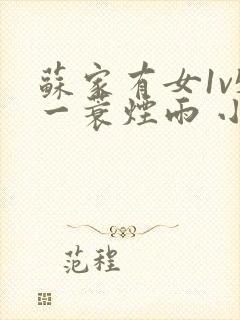 蘇家有女1v
一蓑煙雨 小
范程